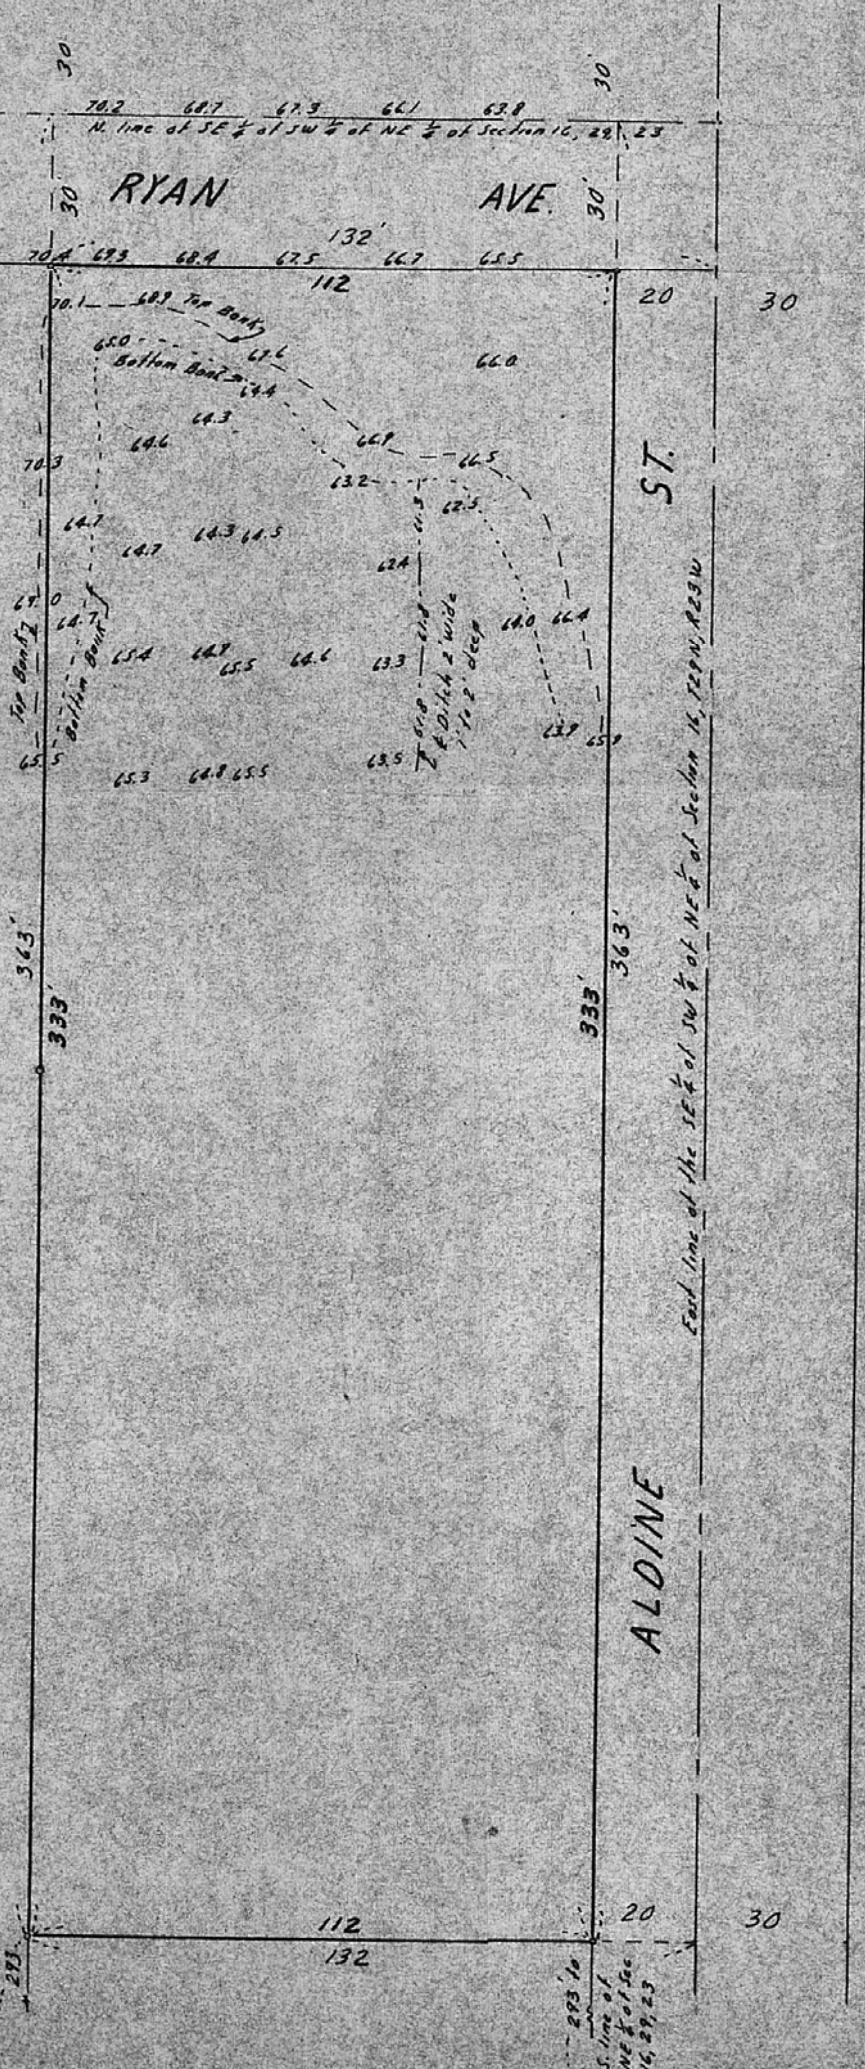 30'
30'
70.2 68.7 67.3 66.1 63.8
N. line of SE ¼ of SW ¼ of NE ¼ of Section 16, 29, 23
30'
RYAN AVE.
30'
132'
70.4 69.3 68.4 67.5 66.7 65.5
112
20
30
70.1
68.9 Top Bank
65.0
Bottom Bank
67.6
66.0
64.4
64.3
64.6
66.9
66.5
70.3
63.2
62.5
ST.
64.7
64.7
64.3 64.5
61.3
62.4
69.0
64.7
61.8
64.0 66.4
Top Bank
Bottom Bank
65.4
64.9
65.5
64.6
63.3
61.8
¢ Ditch 2' wide
1' to 2' deep
65.5
63.9
65.9
65.3
64.8 65.5
63.5
363'
333'
333'
363'
East line of the SE ¼ of SW ¼ of NE ¼ of Section 16, T29N, R23W
ALDINE
112
132
20
30
293
293' to
S. line of
NE ¼ of Sec
16, 29, 23